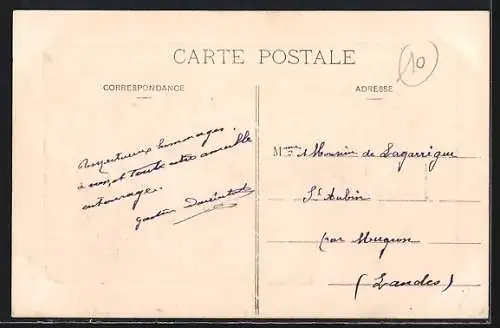 10
CARTE POSTALE
CORRESPONDANCE
ADRESSE
Respectueux hommages
à vous et toute votre aimable
entourage.
gaston
Mme et Monsieur de Lagarrigue
St Aubin
par Mugron
(Landes)